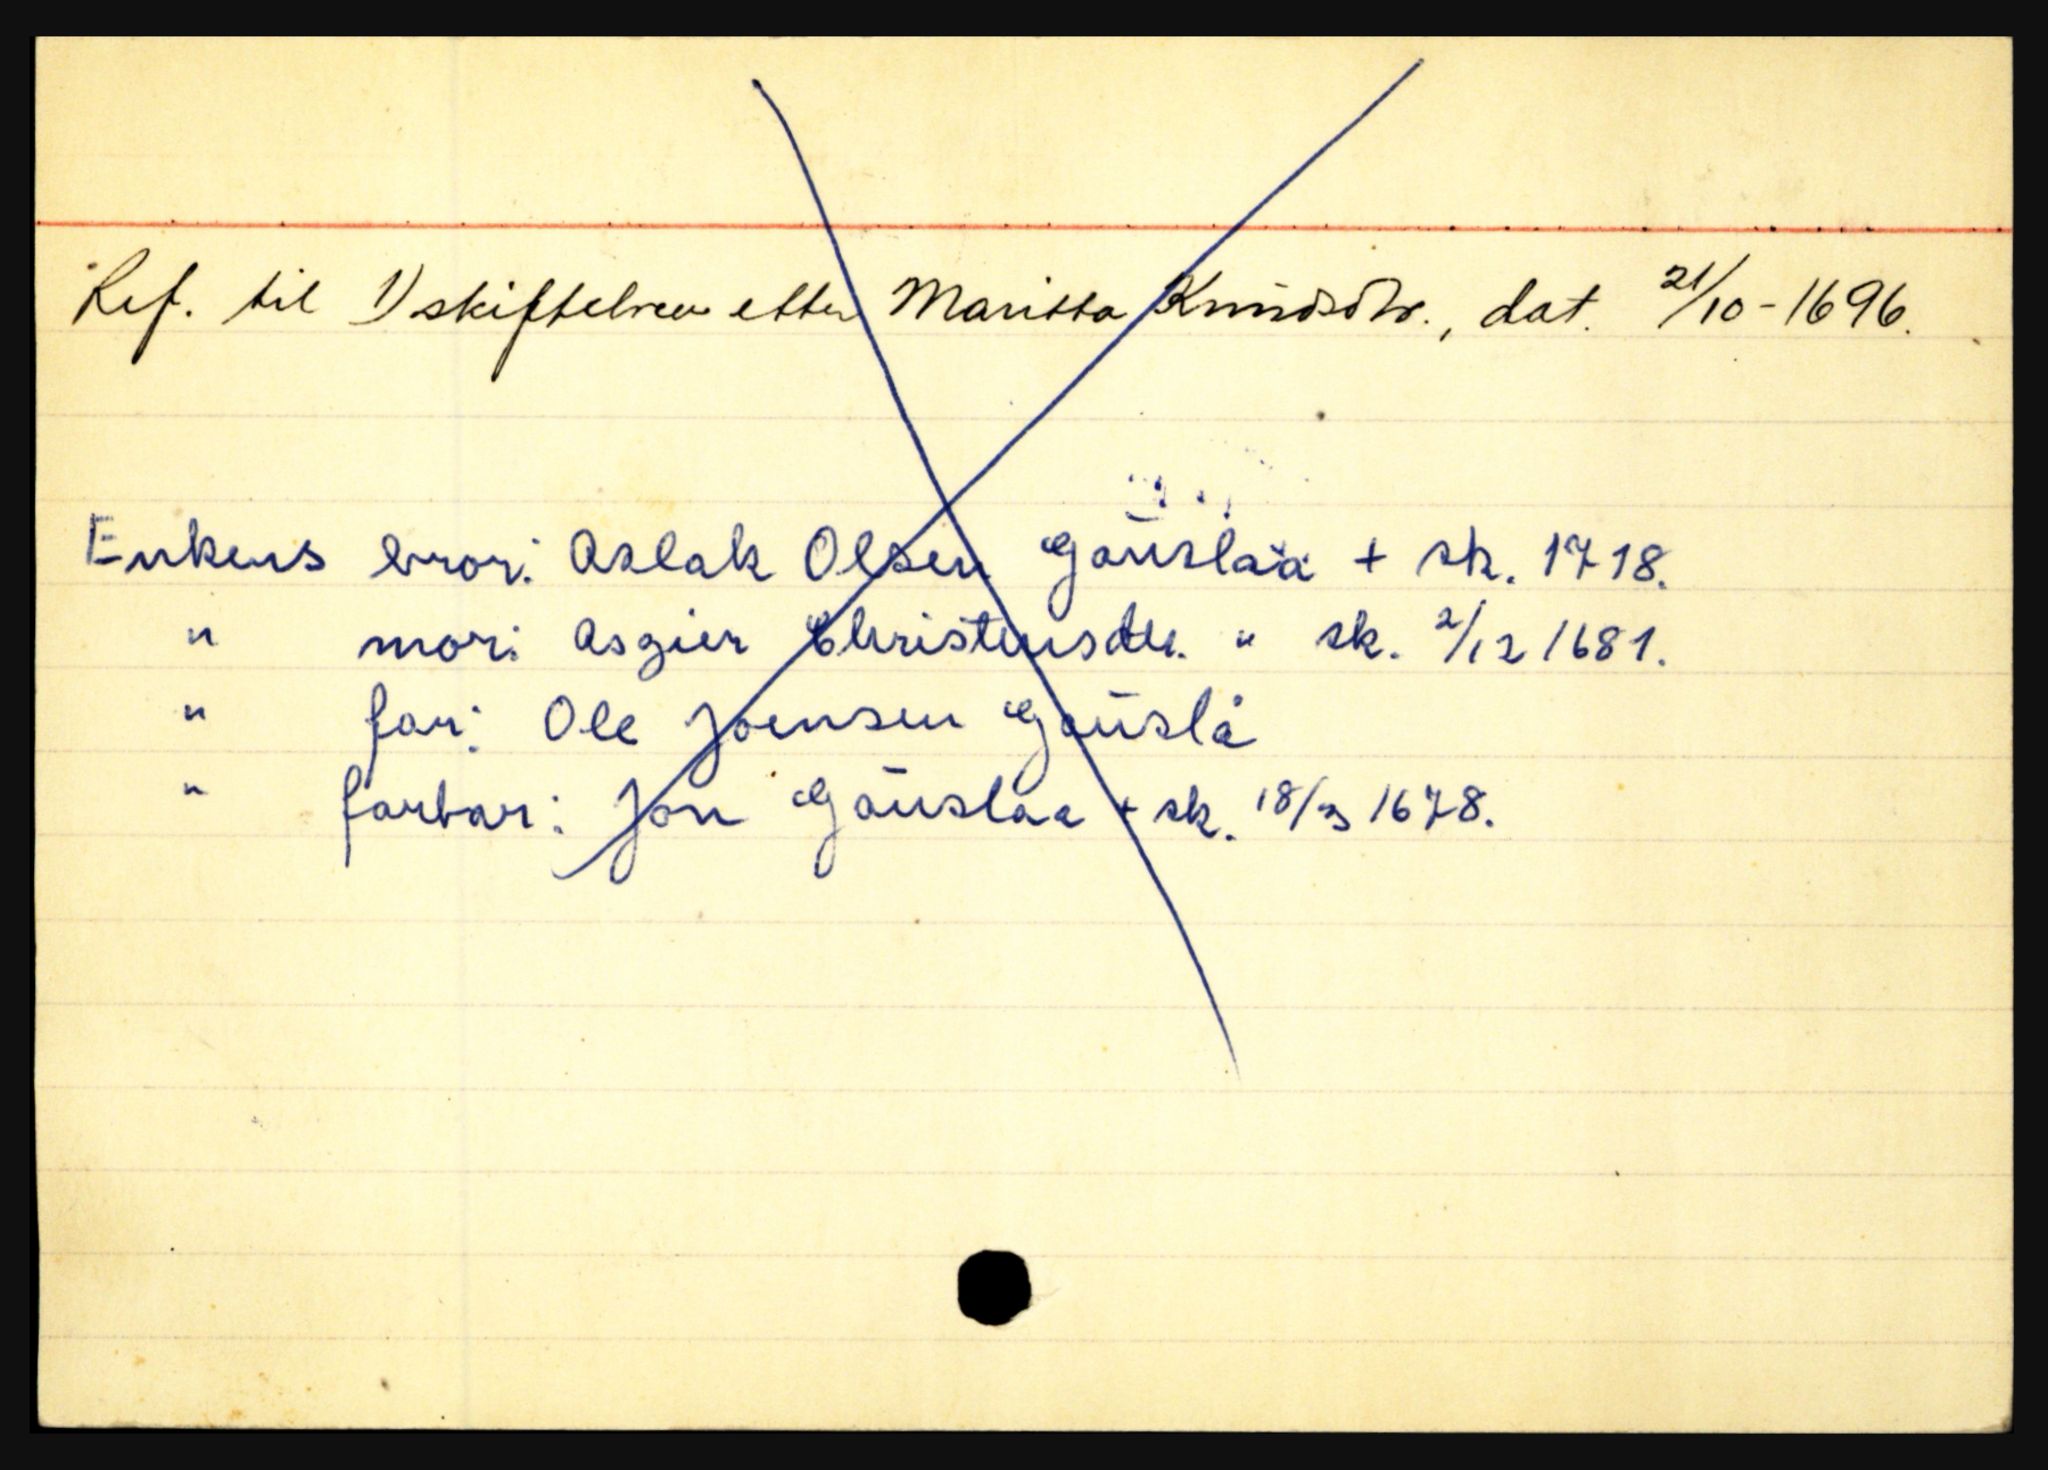 Ref. til 1) skiftebrev etter Maritta Knūdsdtr., dat. 21/10 - 1696.
Enkens bror: Aslak Olsen Gaūslaa + sk. 1718.
" mor: Asgier Christensdtr. " sk. 2/12 1681.
" far: Ole Joensen Gaūslå
" farbar: Jon Gaūslaa + sk. 18/3 1678.